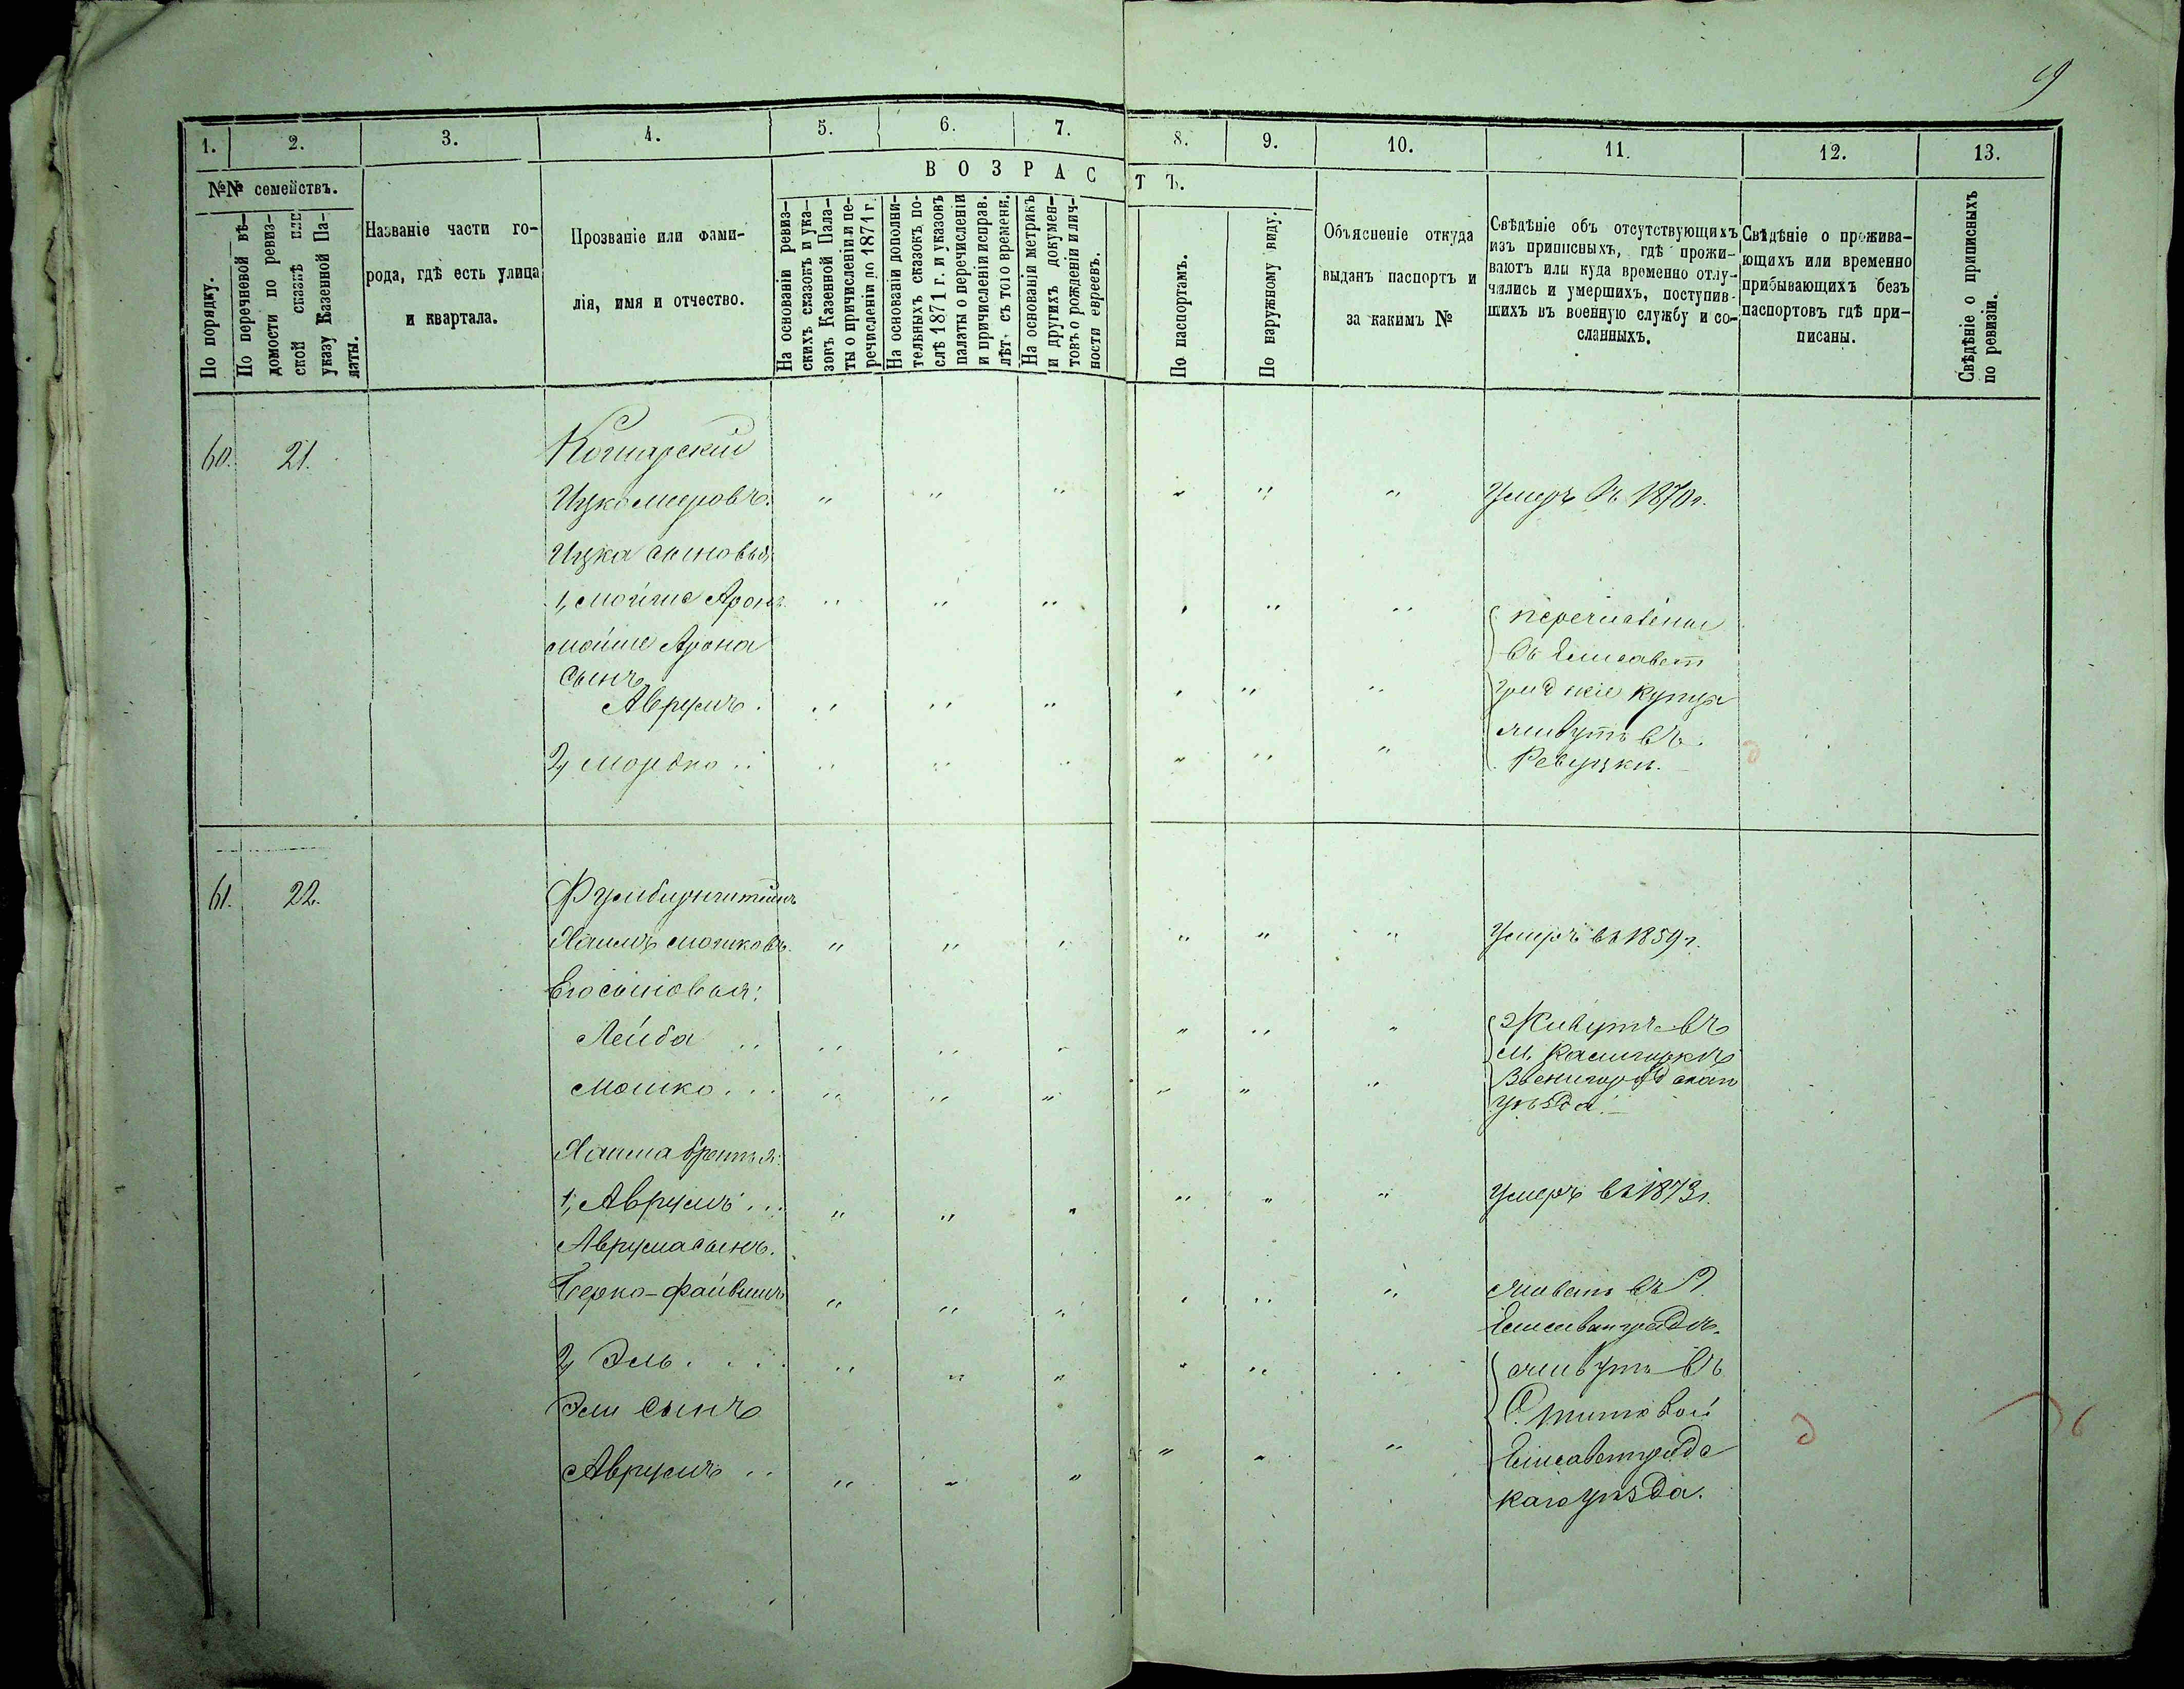 19
1. 2. 3. 4. 5. 6. 7. 8. 9. 10. 11. 12. 13.
№№ семействъ.
По порядку.
По перечневой вѣ-
домости по ревиз-
ской сказкѣ или
указу Казенной Па-
латы.
Названіе части го-
рода, гдѣ есть улица
и квартала.
Прозваніе или фами-
лія, имя и отчество.
ВОЗРАСТЪ.
На основаніи ревиз-
скихъ сказокъ и ука-
зовъ Казенной Пала-
ты о причисленіи и пе-
речисленіи до 1871 г.
На основаніи дополни-
тельныхъ сказокъ, по-
слѣ 1871 г. и указовъ
палаты о перечисленіи
и причисленіи исправ.
лѣт. съ того времени.
На основаніи метрикъ
и другихъ докумен-
товъ о рожденіи и лич-
ности евреевъ.
По паспортамъ.
По наружному виду.
Объясненіе откуда
выданъ паспортъ и
за какимъ №
Свѣдѣніе объ отсутствующихъ
изъ приписныхъ, гдѣ прожи-
ваютъ или куда временно отлу-
чились и умершихъ, поступив-
шихъ въ военную службу и со-
сланныхъ.
Свѣдѣніе о прожива-
ющихъ или временно
прибывающихъ безъ
паспортовъ гдѣ при-
писаны.
Свѣдѣніе о приписныхъ
по ревизіи.
60. 21. Кошарскій
Ицко Меровъ. " " " " " " Умеръ въ 1870 г.
Ицка сыновья
1, Мойше Аронъ " " " " " " перечислены
Мойше Арона въ Елисавет
сынъ
Аврумъ . " " " " " " градскіе купцы
живутъ въ
2, Мордко .. " " " " " " Ревуцки.
61. 22.
Хаимъ Мошковъ. " " " " " " Умеръ въ 1859 г.
Его сыновья:
Лейба .. " " " " " " Живутъ въ
м. Калигоркѣ
Мошко ... " " " " " " Звенигородскаго
уѣзда.
Хаима братья:
1, Аврумъ ... " " " " " " Умеръ въ 1873 г.
Аврума сынъ.
Берко-Файвишъ " " " " " " живетъ въ г.
Елисаветградѣ.
2, Эль .... " " " " " " живутъ въ
Эли сынъ
Аврумъ .. " " " " " " Елисаветградс
каго уѣзда.